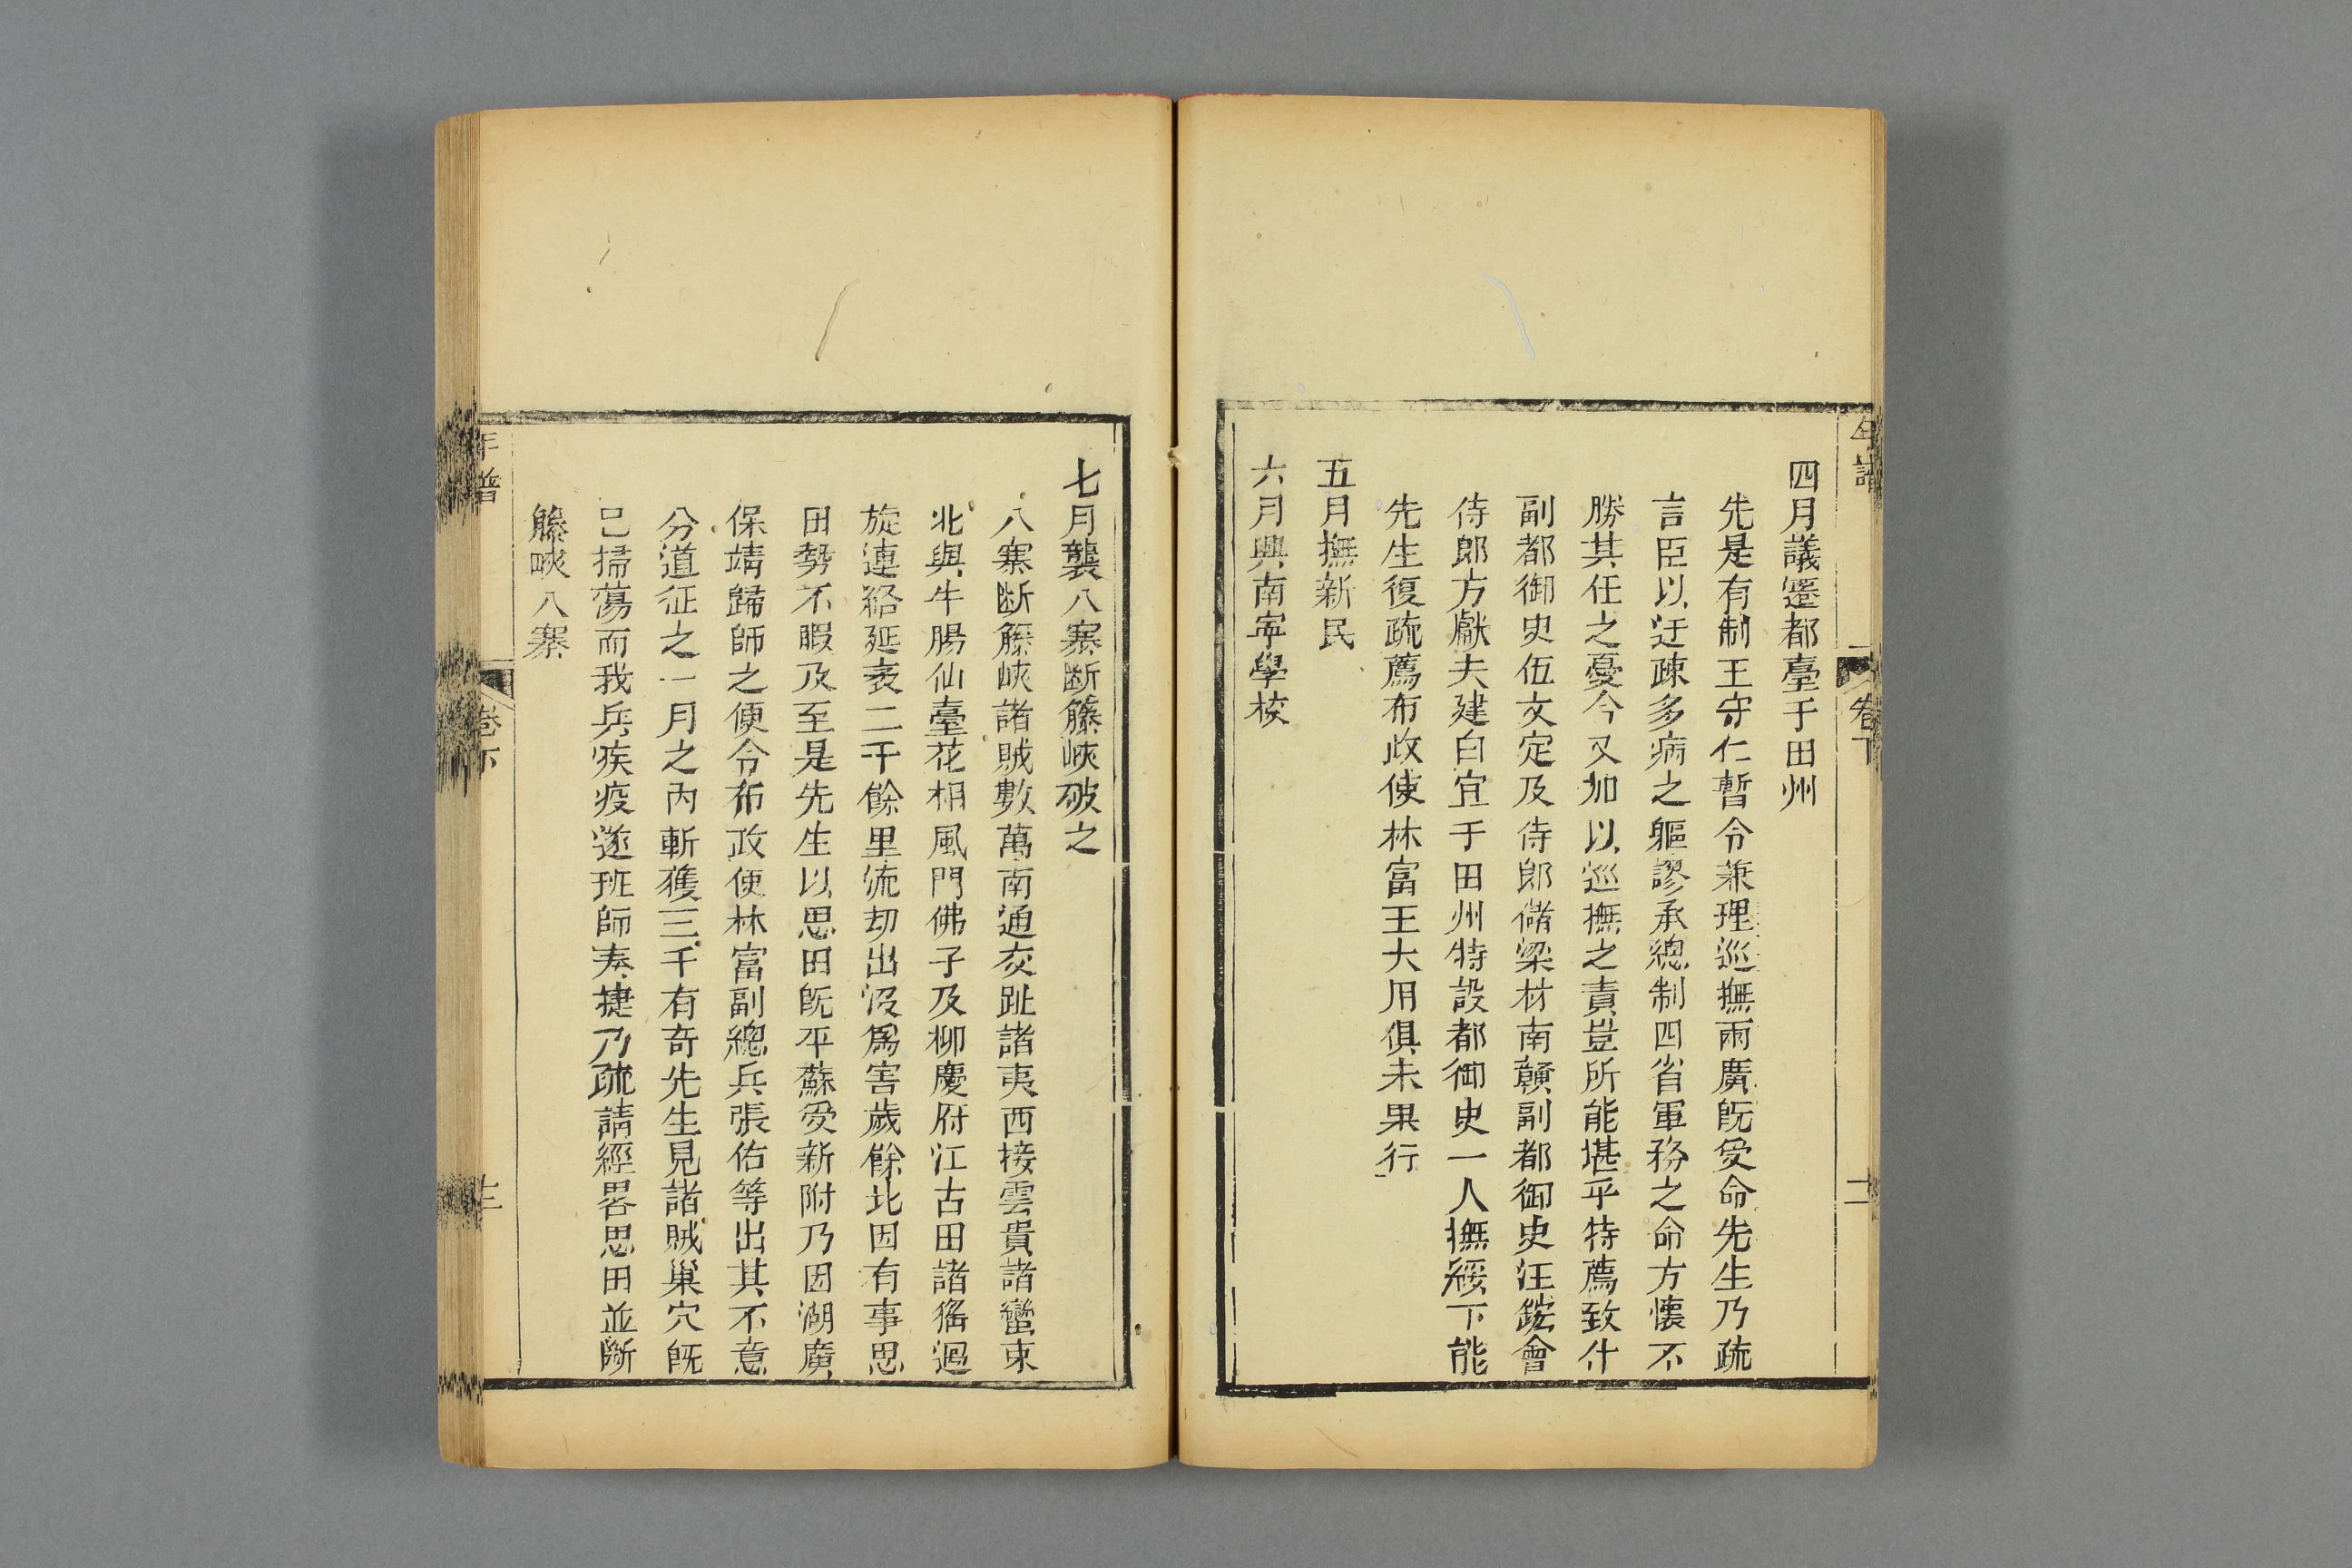 年譜 卷下
四月議遷都臺于田州
先是有制王守仁暫令兼理巡撫兩廣旣受命先生乃疏
言臣以迂疎多病之軀謬承總制四省軍務之命方懷不
勝其任之憂今又加以巡撫之責豈所能堪乎特薦致仕
副都御史伍文定及侍郎儲梁材南贛副都御史汪鋐會
侍郎方獻夫建白宜于田州特設都御史一人撫綏下能
先生復疏薦布政使林富王大用俱未果行
五月撫新民
六月興南寧學校
七月襲八寨斷籐峽破之
八寨斷籐峽諸賊數萬南通交趾諸夷西接雲貴諸蠻東
北與牛腸仙臺花相風門佛子及柳慶府江古田諸猺迴
旋連絡延袤二千餘里流刼出沒爲害歲餘北因有事思
田勢不暇及至是先生以思田旣平蘇受新附乃因湖廣
保靖歸師之便令布政使林富副總兵張佑等出其不意
分道征之一月之內斬獲三千有奇先生見諸賊巢穴旣
已掃蕩而我兵疾疫遂班師奏捷乃疏請經畧思田並斷
籐峽八寨
年譜 卷下